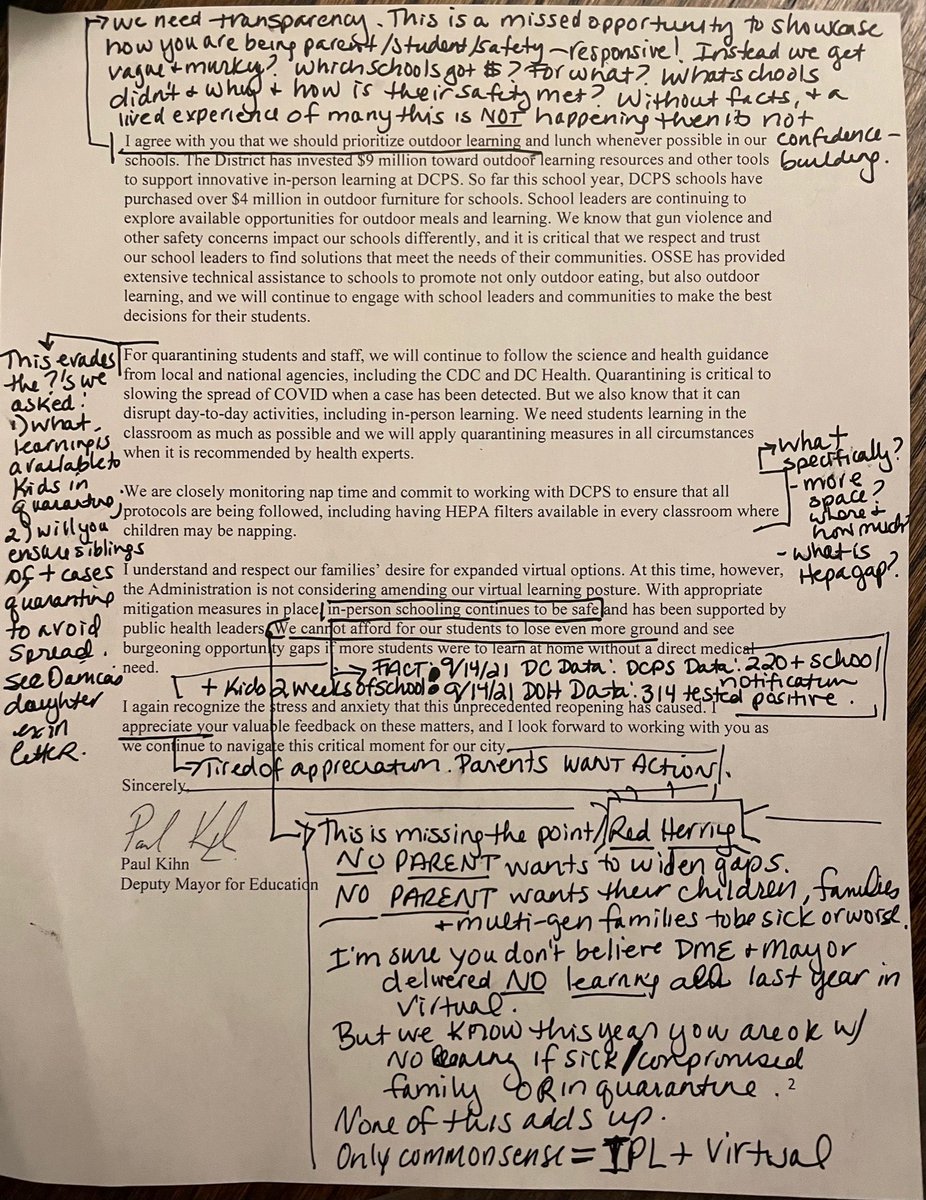 we need transparency. This is a missed opportunity to showcase
how you are being parent/student/safety-responsive! Instead we get
vague + murky? Which schools got $? For what? What schools
didn't & why & how is their safety met? Without facts, & a
lived experience of many this is NOT happening then its not
confidence-
building.
I agree with you that we should prioritize outdoor learning and lunch whenever possible in our
schools. The District has invested $9 million toward outdoor learning resources and other tools
to support innovative in-person learning at DCPS. So far this school year, DCPS schools have
purchased over $4 million in outdoor furniture for schools. School leaders are continuing to
explore available opportunities for outdoor meals and learning. We know that gun violence and
other safety concerns impact our schools differently, and it is critical that we respect and trust
our school leaders to find solutions that meet the needs of their communities. OSSE has provided
extensive technical assistance to schools to promote not only outdoor eating, but also outdoor
learning, and we will continue to engage with school leaders and communities to make the best
decisions for their students.
This evades
the ?'s we
asked:
1) what
learning is
available to
kids in
quarantine,
2) will you
ensure siblings
of + cases
quarantine
to avoid
spread.
see Danica's
daughter
ex in
letter.
For quarantining students and staff, we will continue to follow the science and health guidance
from local and national agencies, including the CDC and DC Health. Quarantining is critical to
slowing the spread of COVID when a case has been detected. But we also know that it can
disrupt day-to-day activities, including in-person learning. We need students learning in the
classroom as much as possible and we will apply quarantining measures in all circumstances
when it is recommended by health experts.
what
specifically?
- more
space?
where &
how much?
- what is
Hepa gap?
We are closely monitoring nap time and commit to working with DCPS to ensure that all
protocols are being followed, including having HEPA filters available in every classroom where
children may be napping.
I understand and respect our families' desire for expanded virtual options. At this time, however,
the Administration is not considering amending our virtual learning posture. With appropriate
mitigation measures in place, in-person schooling continues to be safe and has been supported by
public health leaders. We cannot afford for our students to lose even more ground and see
burgeoning opportunity gaps if more students were to learn at home without a direct medical
need.
FACT: 9/14/21 DC Data: DCPS Data: 220+ school
notification
+ Kids 2 weeks of school: 9/14/21 DOH Data: 314 tested positive.
I again recognize the stress and anxiety that this unprecedented reopening has caused. I
appreciate your valuable feedback on these matters, and I look forward to working with you as
we continue to navigate this critical moment for our city.
Tired of appreciation. Parents WANT ACTION!
Sincerely,
Paul Kihn
Deputy Mayor for Education
This is missing the point/Red Herring
NO PARENT wants to widen gaps.
NO PARENT wants their children, families
+ multi-gen families to be sick or worse.
I'm sure you don't believe DME + Mayor
delivered NO learning all last year in
virtual.
But we know this year you are ok w/
NO learning if sick/compromised
family OR in quarantine.
2
None of this adds up.
Only commonsense = IPL + Virtual